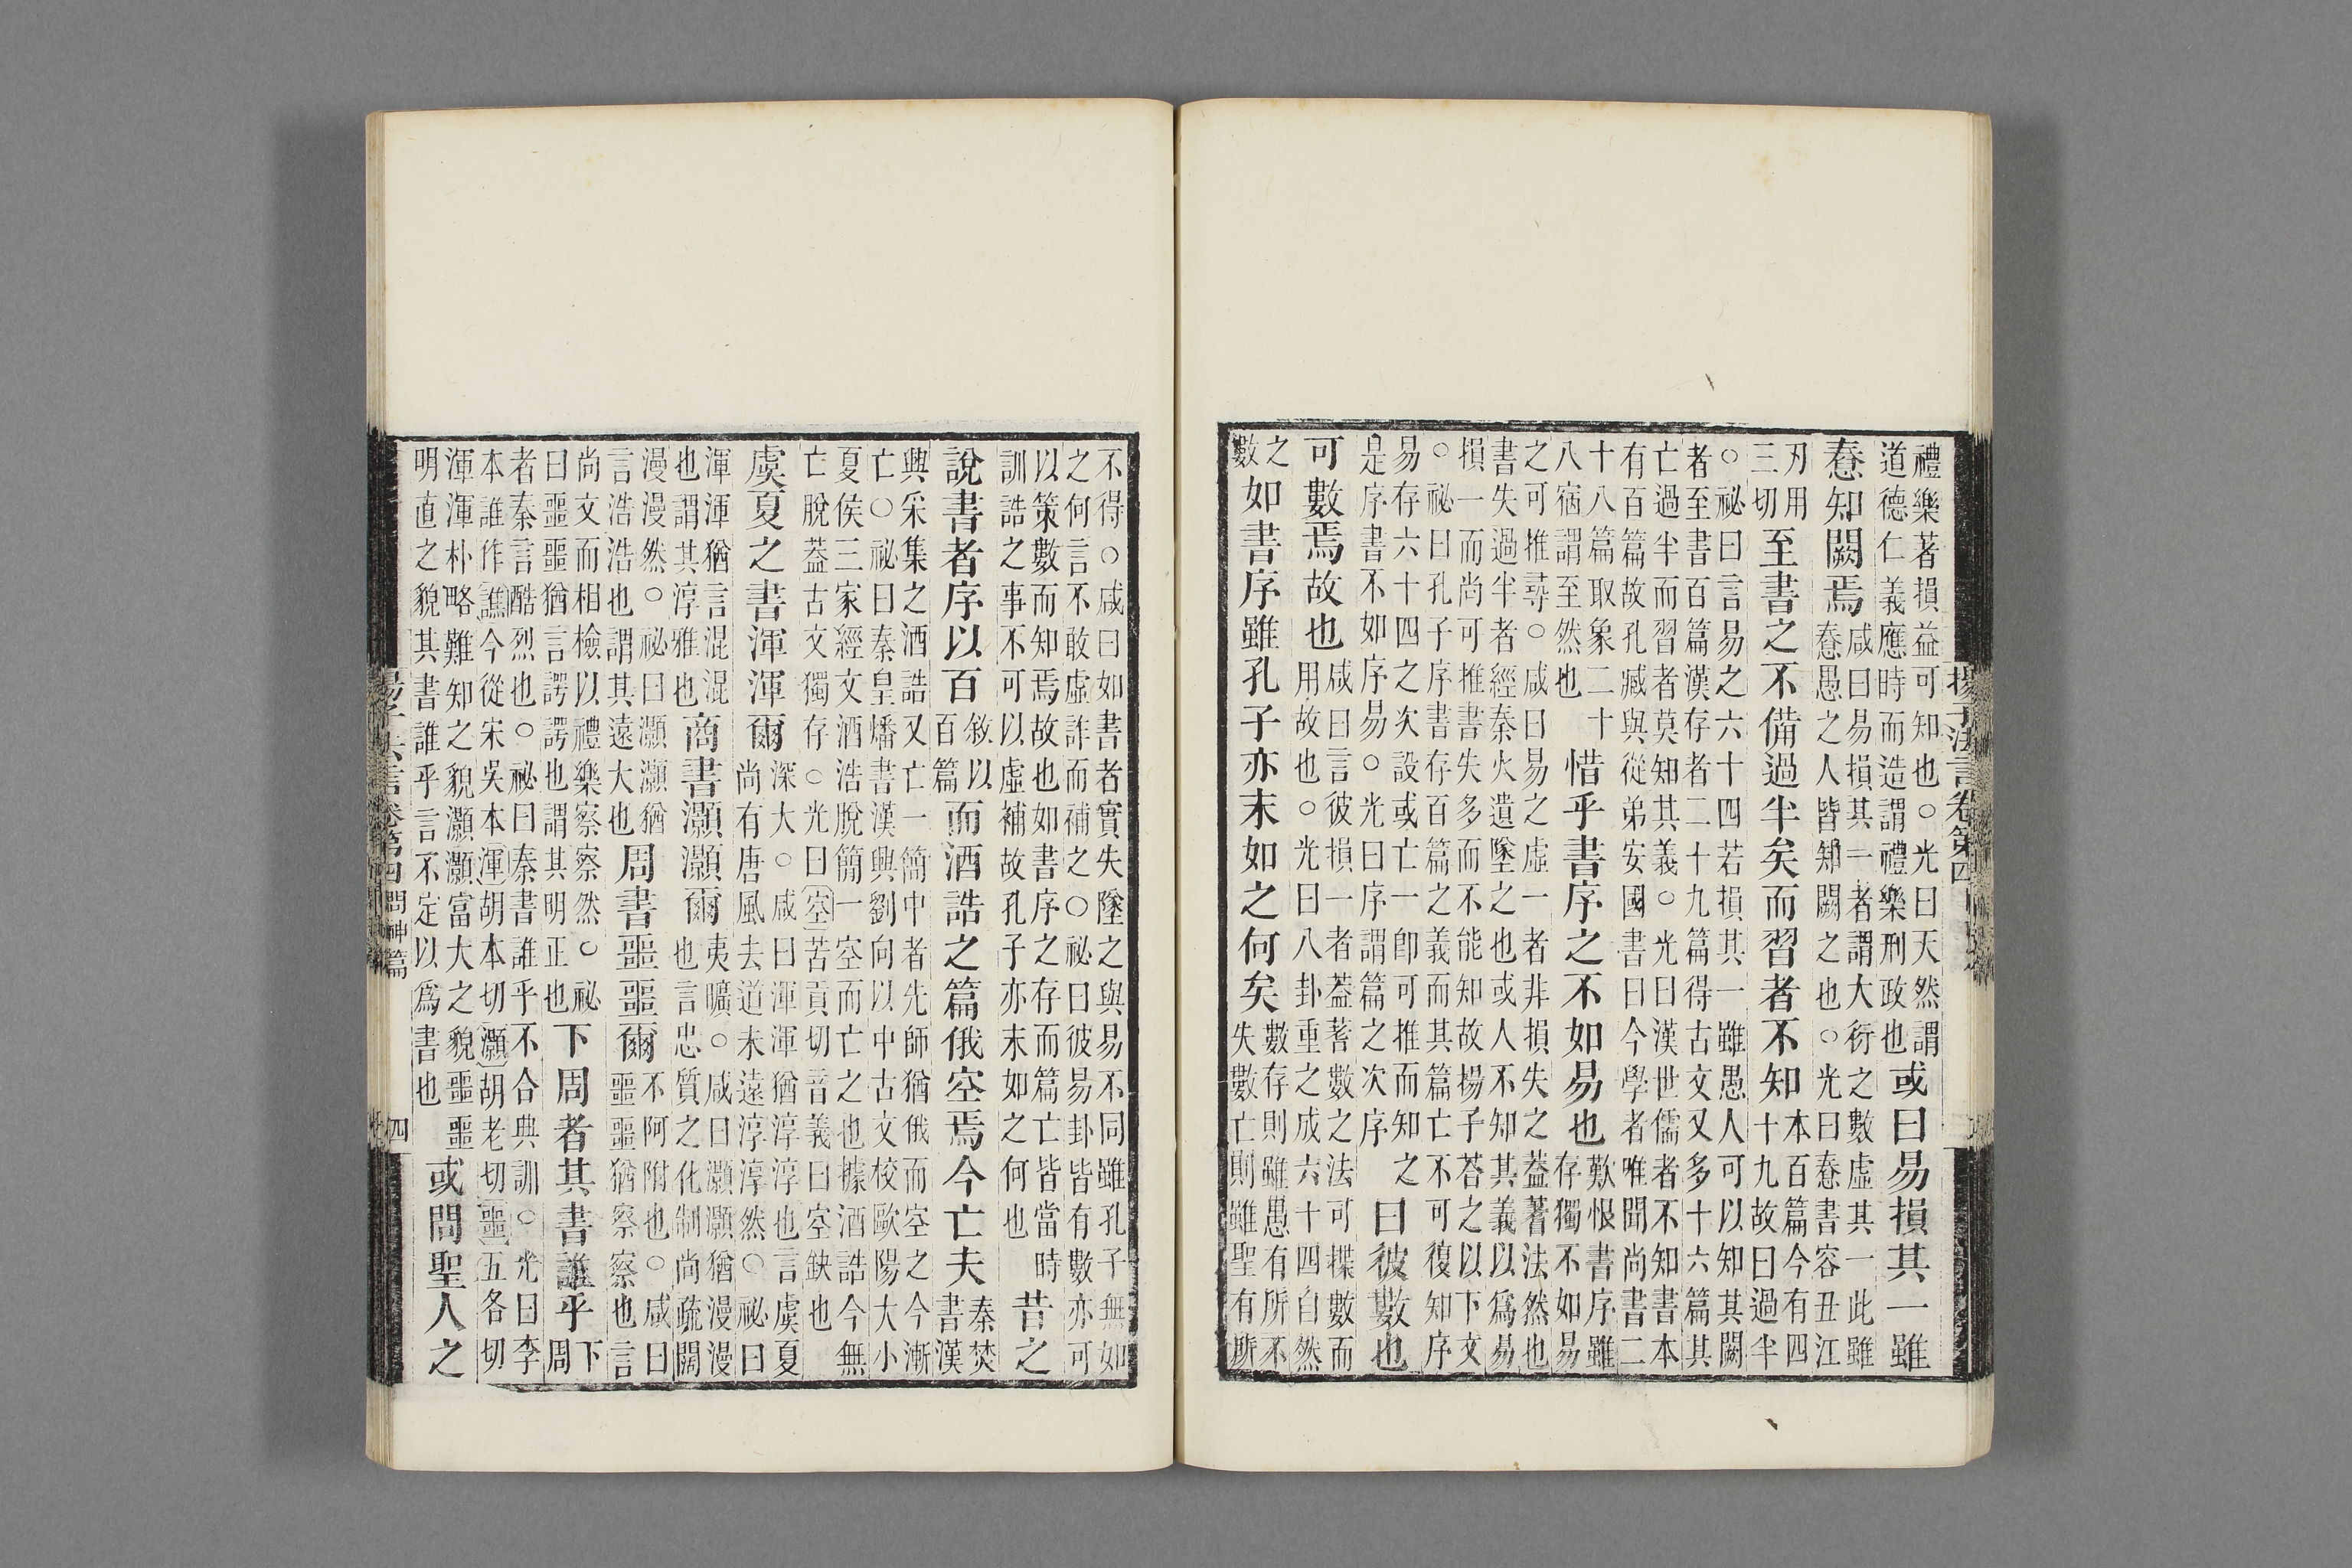 揚子法言卷第四
禮樂著損益可知也○光曰天然謂
道德仁義應時而造謂禮樂刑政也
或曰易損其一雖
惷知闕焉
咸曰易損其一者謂大衍之數虛其一此雖
惷愚之人皆知闕之也○光曰惷書容丑江
刃用
三切
至書之不備過半矣而習者不知
本百篇今有四
十九故曰過半
○祕曰言易之六十四若損其一雖愚人可以知其闕
者至書百篇漢存者二十九篇得古文又多十六篇其
亡過半而習者莫知其義○光曰漢世儒者不知書本
有百篇故孔臧與從弟安國書曰今學者唯聞尚書二
十八篇取象二十
八宿謂至然也
惜乎書序之不如易也
歎恨書序雖
存獨不如易
之可推尋○咸曰易之虛一者非損失之蓋蓍法然也
書失過半者經秦火遺墜之也或人不知其義以爲易
損一而尚可推書失多而不能知故揚子荅之以下文
○祕曰孔子序書存百篇之義而其篇亡不可復知序
易存六十四之次設或亡一卽可推而知之
是序書不如序易○光曰序謂篇之次序
曰彼數也
可數焉故也
咸曰言彼損一者蓋蓍數之法可揲數而
用故也○光曰八卦重之成六十四自然
之
數
如書序雖孔子亦末如之何矣
數存則雖愚有所不
失數亡則雖聖有所
不得○咸曰如書者實失墜之與易不同雖孔子無如
之何言不敢虛詐而補之○祕曰彼易卦皆有數亦可
以策數而知焉故也如書序之存而篇亡皆當時
訓誥之事不可以虛補故孔子亦末如之何也
昔之
說書者序以百
敘以
百篇
而酒誥之篇俄空焉今亡夫
秦焚
書漢
興采集之酒誥又亡一簡中者先師猶俄而空之今漸
亡○祕曰秦皇燔書漢興劉向以中古文校歐陽大小
夏侯三家經文酒誥脫簡一空而亡之也據酒誥今無
亡脫蓋古文獨存○光曰空苦貢切音義曰空缺也
虞夏之書渾渾爾
深大○咸曰渾渾猶淳淳也言虞夏
尚有唐風去道未遠淳淳然○祕曰
渾渾猶言混混
也謂其淳雅也
商書灝灝爾
夷曠○咸曰灝灝猶漫漫
也言忠質之化制尚疏闊
漫漫然○祕曰灝灝猶
言浩浩也謂其遠大也
周書噩噩爾
不阿附也○咸曰
噩噩猶察察也言
尚文而相檢以禮樂察察然○祕
曰噩噩猶言諤諤也謂其明正也
下周者其書誰乎
下
周
者秦言酷烈也○祕曰秦書誰乎不合典訓○光曰李
本誰作譙今從宋吳本渾胡本切灝胡老切噩五各切
渾渾朴略難知之貌灝灝富大之貌噩噩
明直之貌其書誰乎言不定以爲書也
或問聖人之
揚子法言卷第四 問神篇 四